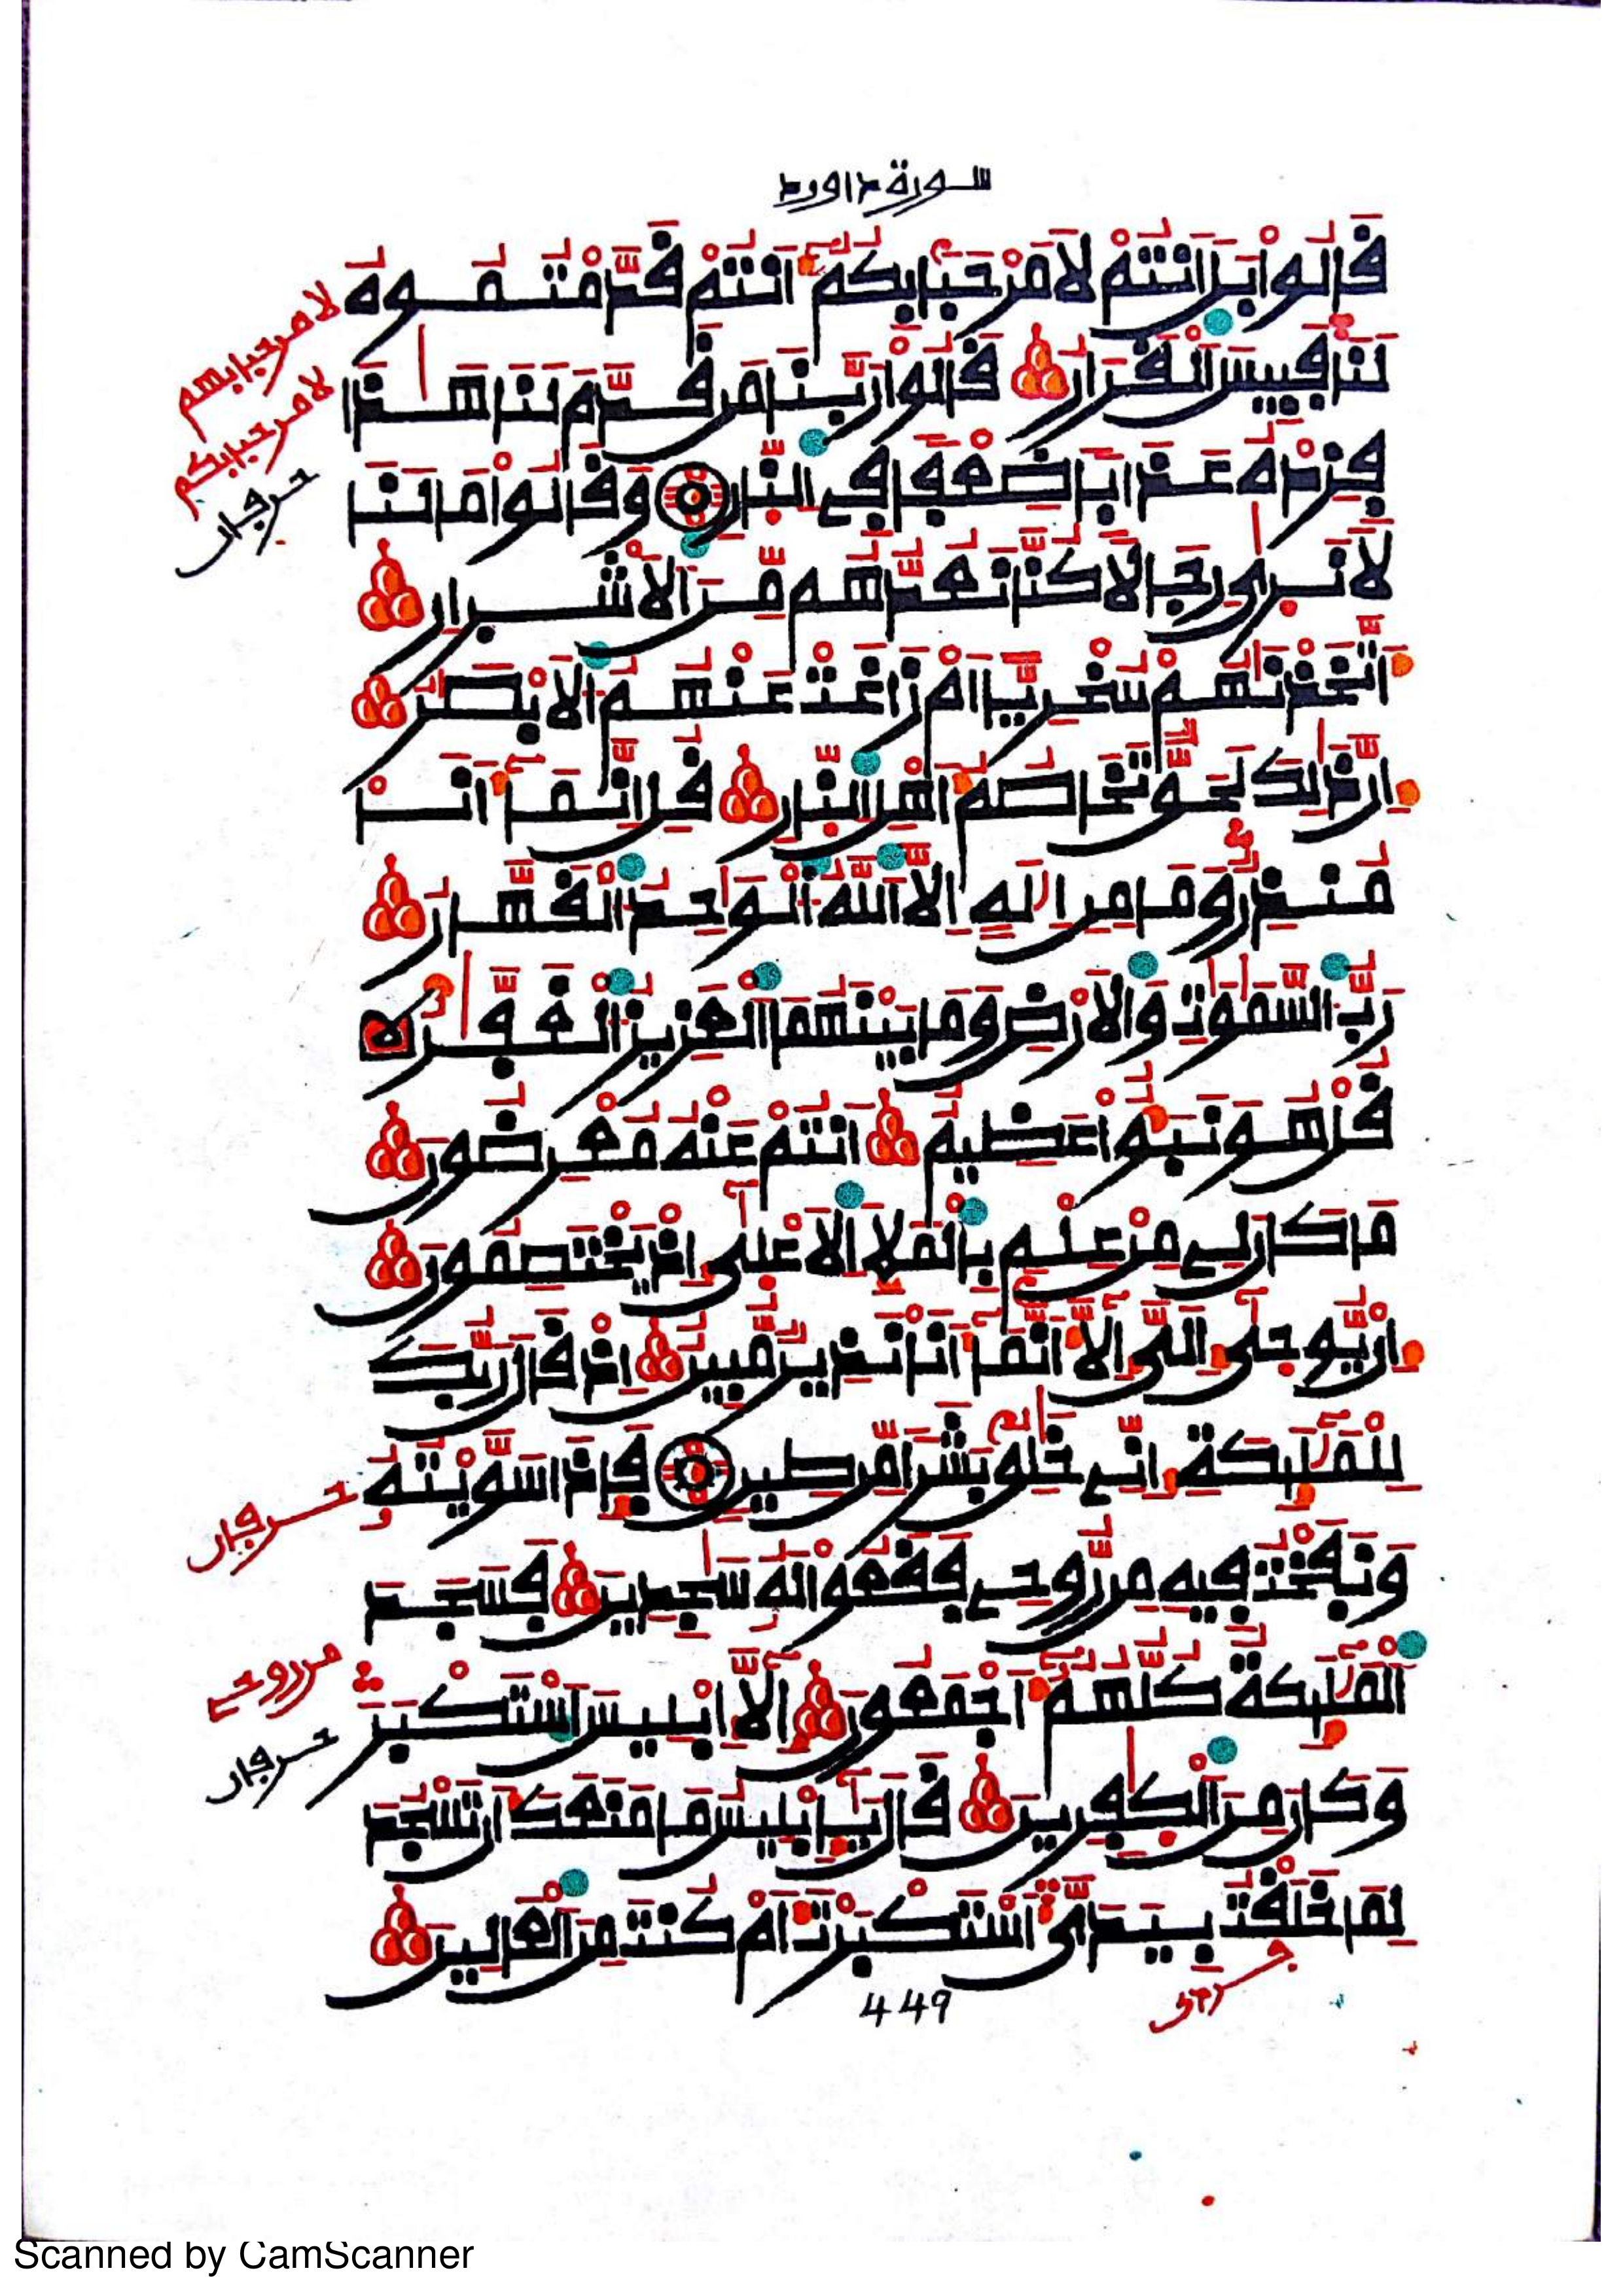 سورة داوود
قَالُوا بَلْ اَنتُمْ لَا مَرْحَبًا بِكُمُ أَنتُمْ قَدَّمْتُمُوهُ
لَنَا فَبِيسَ ٱلْقَرَارُ قَالُوا رَبَّنَا مَن قَدَّمَ لَنَا هَـٰذَا
فَزِدْهُ عَذَابًا ضِعْفًا فِى ٱلنَّارِ وَقَالُوا مَا لَنَا
لَا نَرَىٰ رِجَالًا كُنَّا نَعُدُّهُم مِّنَ ٱلْأَشْرَارِ
أَتَّخَذْنَٰهُمْ سُخْرِيًّا اَمْ زَاغَتْ عَنْهُمُ ٱلْأَبْصَٰرُ
إِنَّ ذَٰلِكَ لَحَقٌّ تَخَاصُمُ أَهْلِ ٱلنَّارِ قُلِ اِنَّمَا أَنَا
مُنذِرٌ وَمَا مِنِ اِلَٰهٍ اِلَّا ٱللَّهُ ٱلْوَٰحِدُ ٱلْقَهَّارُ
رَبُّ ٱلسَّمَٰوَٰتِ وَٱلْأَرْضِ وَمَا بَيْنَهُمَا ٱلْعَزِيزُ ٱلْغَفَّٰرُ
قُلْ هُوَ نَبَؤٌا عَظِيمٌ اَنتُمْ عَنْهُ مُعْرِضُونَ
مَا كَانَ لِى مِنْ عِلْمٍ بِٱلْمَلَإِ ٱلْأَعْلَىٰ إِذْ يَخْتَصِمُونَ
إِنْ يُّوحَىٰ إِلَىَّ إِلَّا أَنَّمَا أَنَا نَذِيرٌ مُّبِينٌ اِذْ قَالَ رَبُّكَ
لِلْمَلَٰئِكَةِ إِنِّى خَٰلِقٌ بَشَرًا مِّن طِينٍ فَإِذَا سَوَّيْتُهُ
وَنَفَخْتُ فِيهِ مِن رُّوحِى فَقَعُوا لَهُ سَٰجِدِينَ فَسَجَدَ
ٱلْمَلَٰئِكَةُ كُلُّهُمُ أَجْمَعُونَ إِلَّا إِبْلِيسَ ٱسْتَكْبَرَ
وَكَانَ مِنَ ٱلْكَٰفِرِينَ قَالَ يَٰإِبْلِيسُ مَا مَنَعَكَ أَن تَسْجُدَ
لِمَا خَلَقْتُ بِيَدَىَّ أَسْتَكْبَرْتَ أَمْ كُنتَ مِنَ ٱلْعَالِينَ
لا مرحبا بهم
لا مرحبا بكم
من روحى
449
Scanned by CamScanner